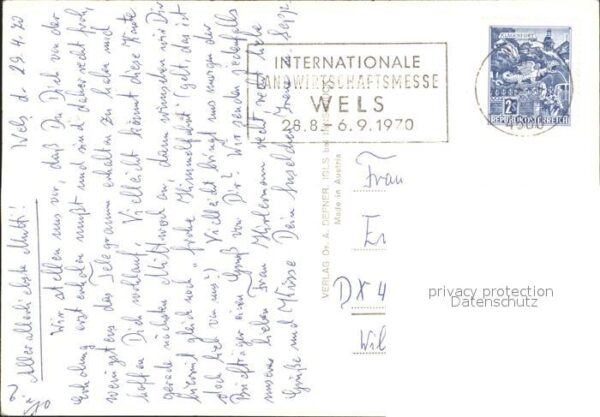 Wels, d. 29.4.70
Allerallerliebste Mutti!
Wir stellen uns vor, daß Du Dich von der
Erholung erst erholen mußt und sind daher recht froh,
wenigstens das Telegramm erhalten zu haben und
hoffen Dich wohlauf. Vielleicht kommt diese Karte
gerade nächsten Mittwoch an, dann wünschen wir Dir
hiermit gleich noch "frohe Himmelfahrt" (gelt, das ist
doch lieb von uns!) Vielleicht bringt uns morgen der
Briefträger einen Gruß von Dir? Wir senden jedenfalls
unserer lieben Frau recht recht liebe
Grüße und Küsse Deine Irene u. Sepp
INTERNATIONALE
LANDWIRTSCHAFTSMESSE
WELS
28.8.-6.9.1970
KLAGENFURT
2S
REPUBLIK ÖSTERREICH
VERLAG DR. A. DEFNER, IGLS bei INNSBRUCK
Made in Austria
Frau
DX 4
Wil
privacy protection
Datenschutz